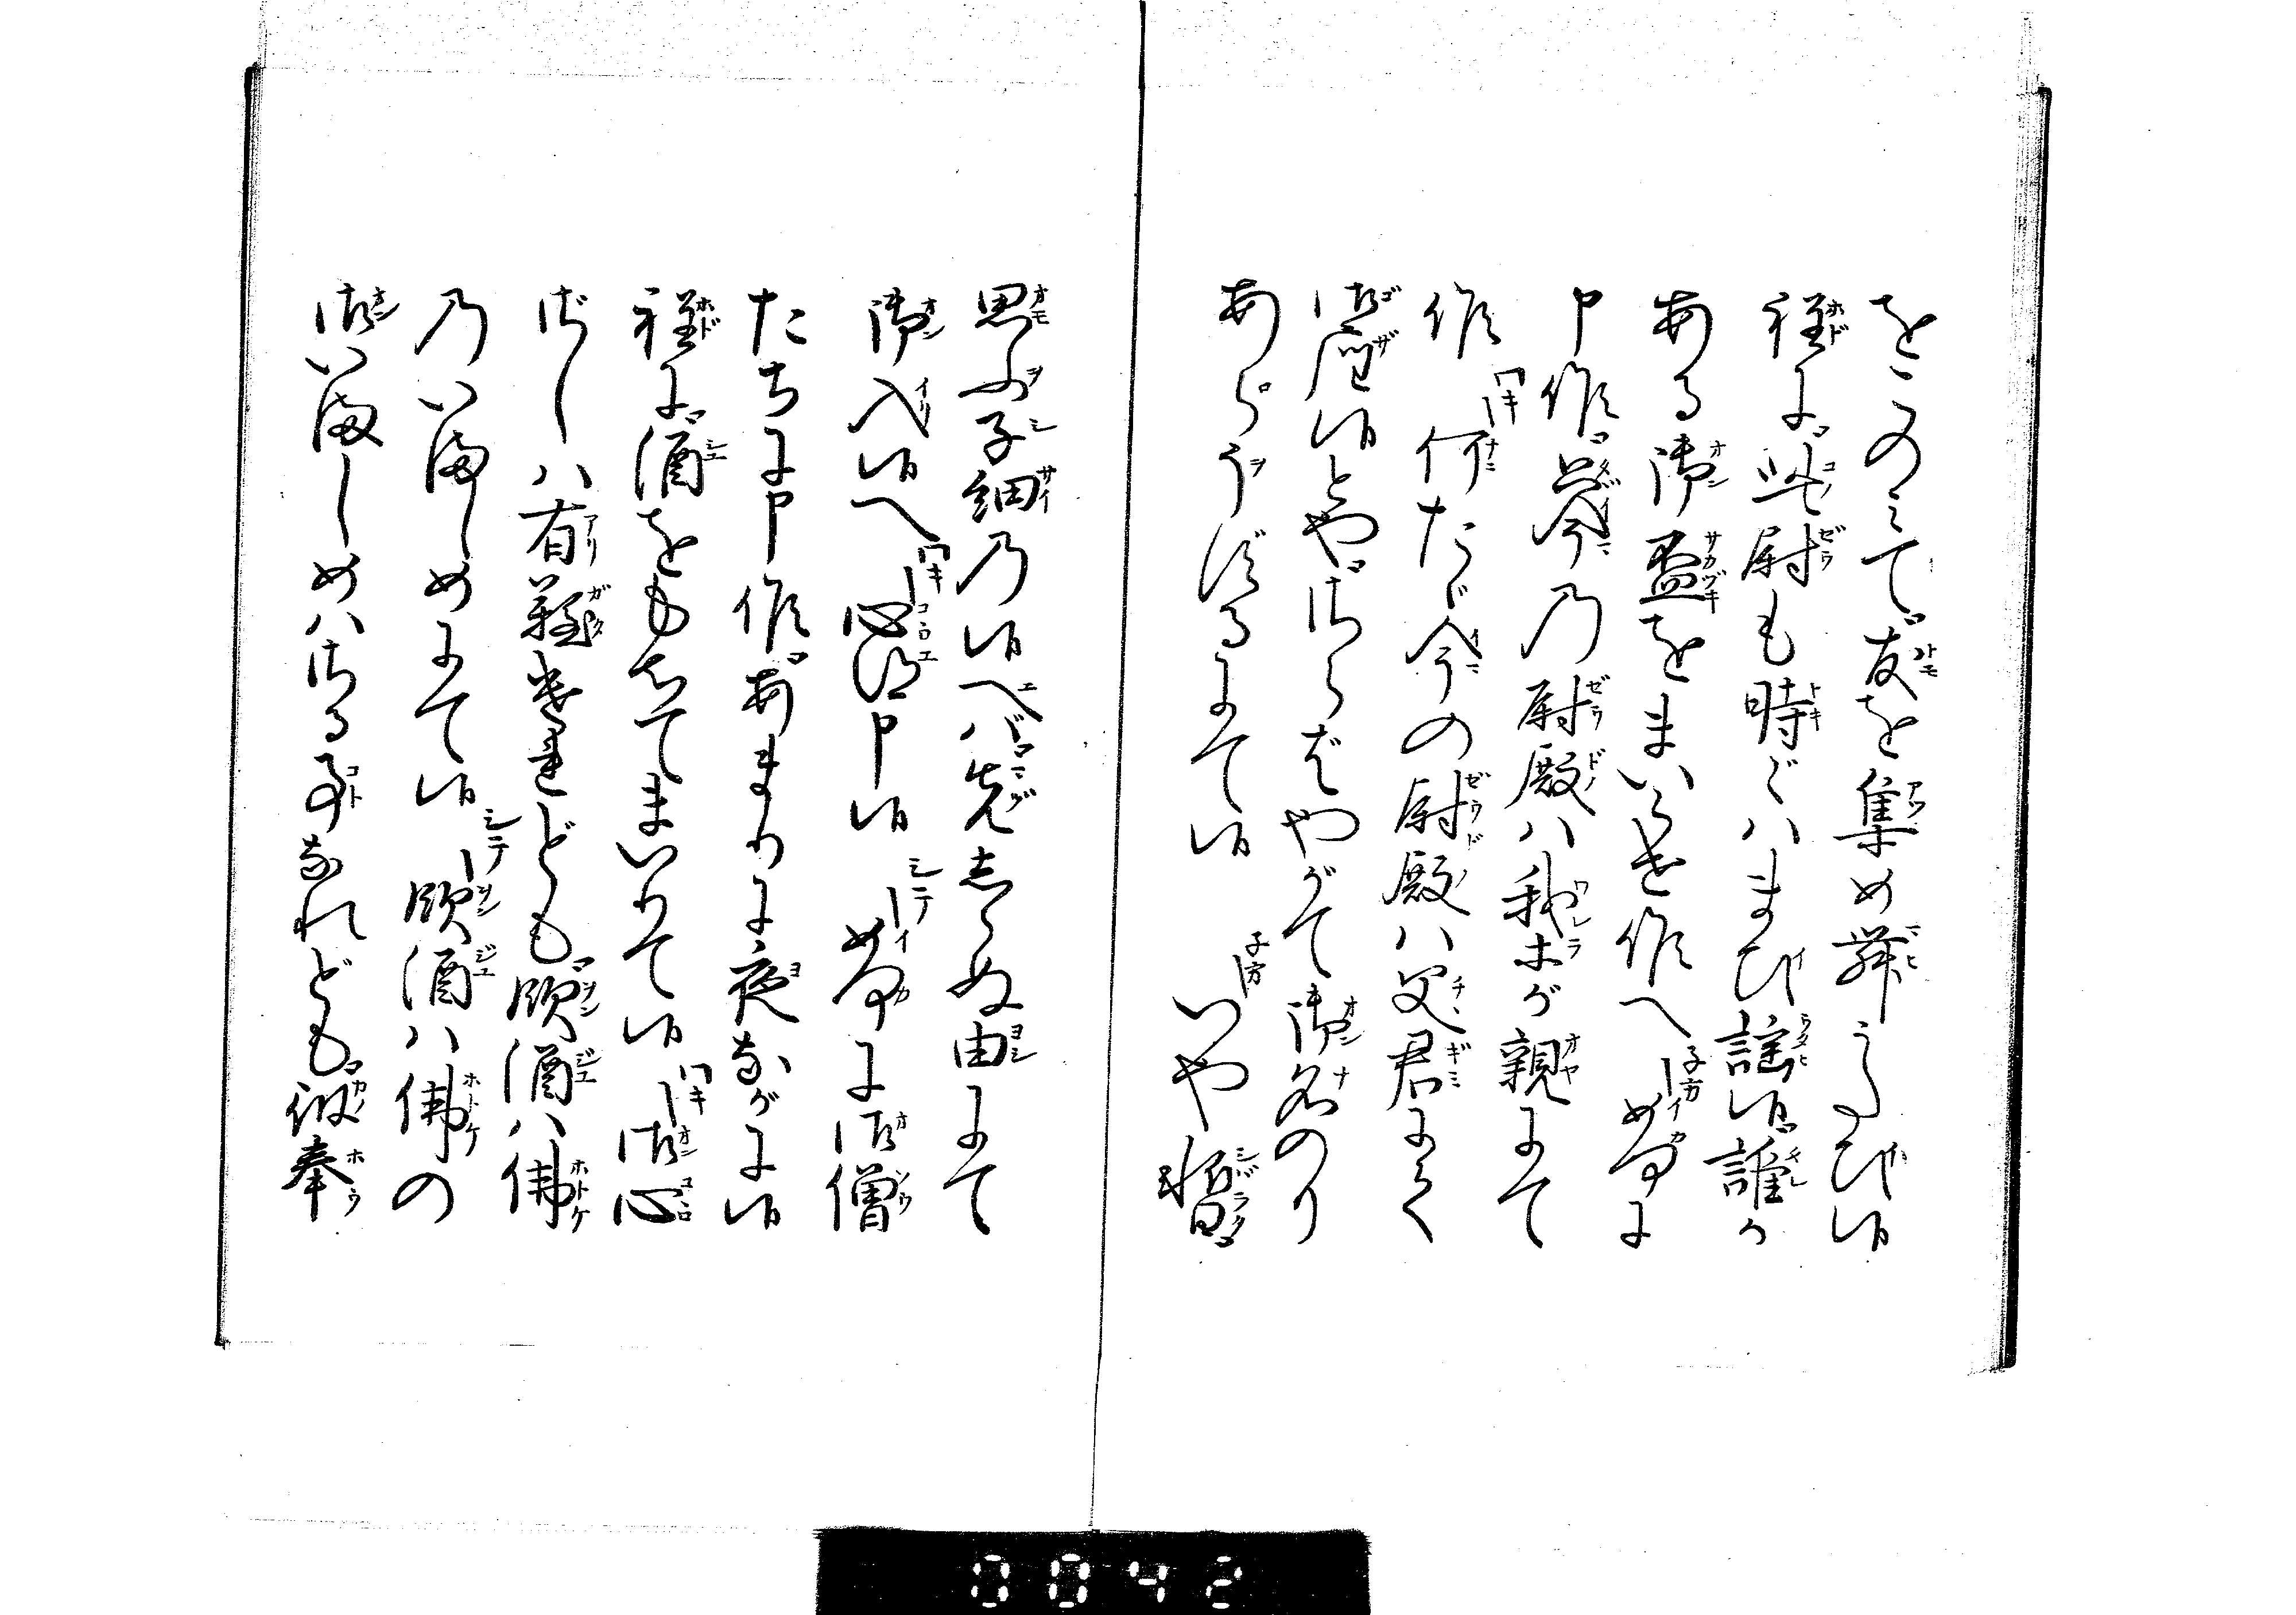 をこのみて友を集め舞うたひ候
程に此尉も時々ハまひ謡候誰か
ある御盃をまいらせ候へ 子方 如何に
申候只今乃尉殿ハ我等が親にて
候 ワキ 何たゞ今の尉殿ハ父君にて
御座候とや さらばやがて御名のり
あらうずるにて候 子方 いや暫
思ふ子細乃候へバ先しらぬ由にて
御入候へ ワキ 心得申候 シテ 如何に御僧
たちに申候あまりに夜ながに候
程に酒をもちてまいりて候 ワキ 御心
ざしハ有難きれども飲酒ハ佛
乃いましめにて候 シテ 飲酒ハ佛の
御いましめハさる事なれども彼奉
0042